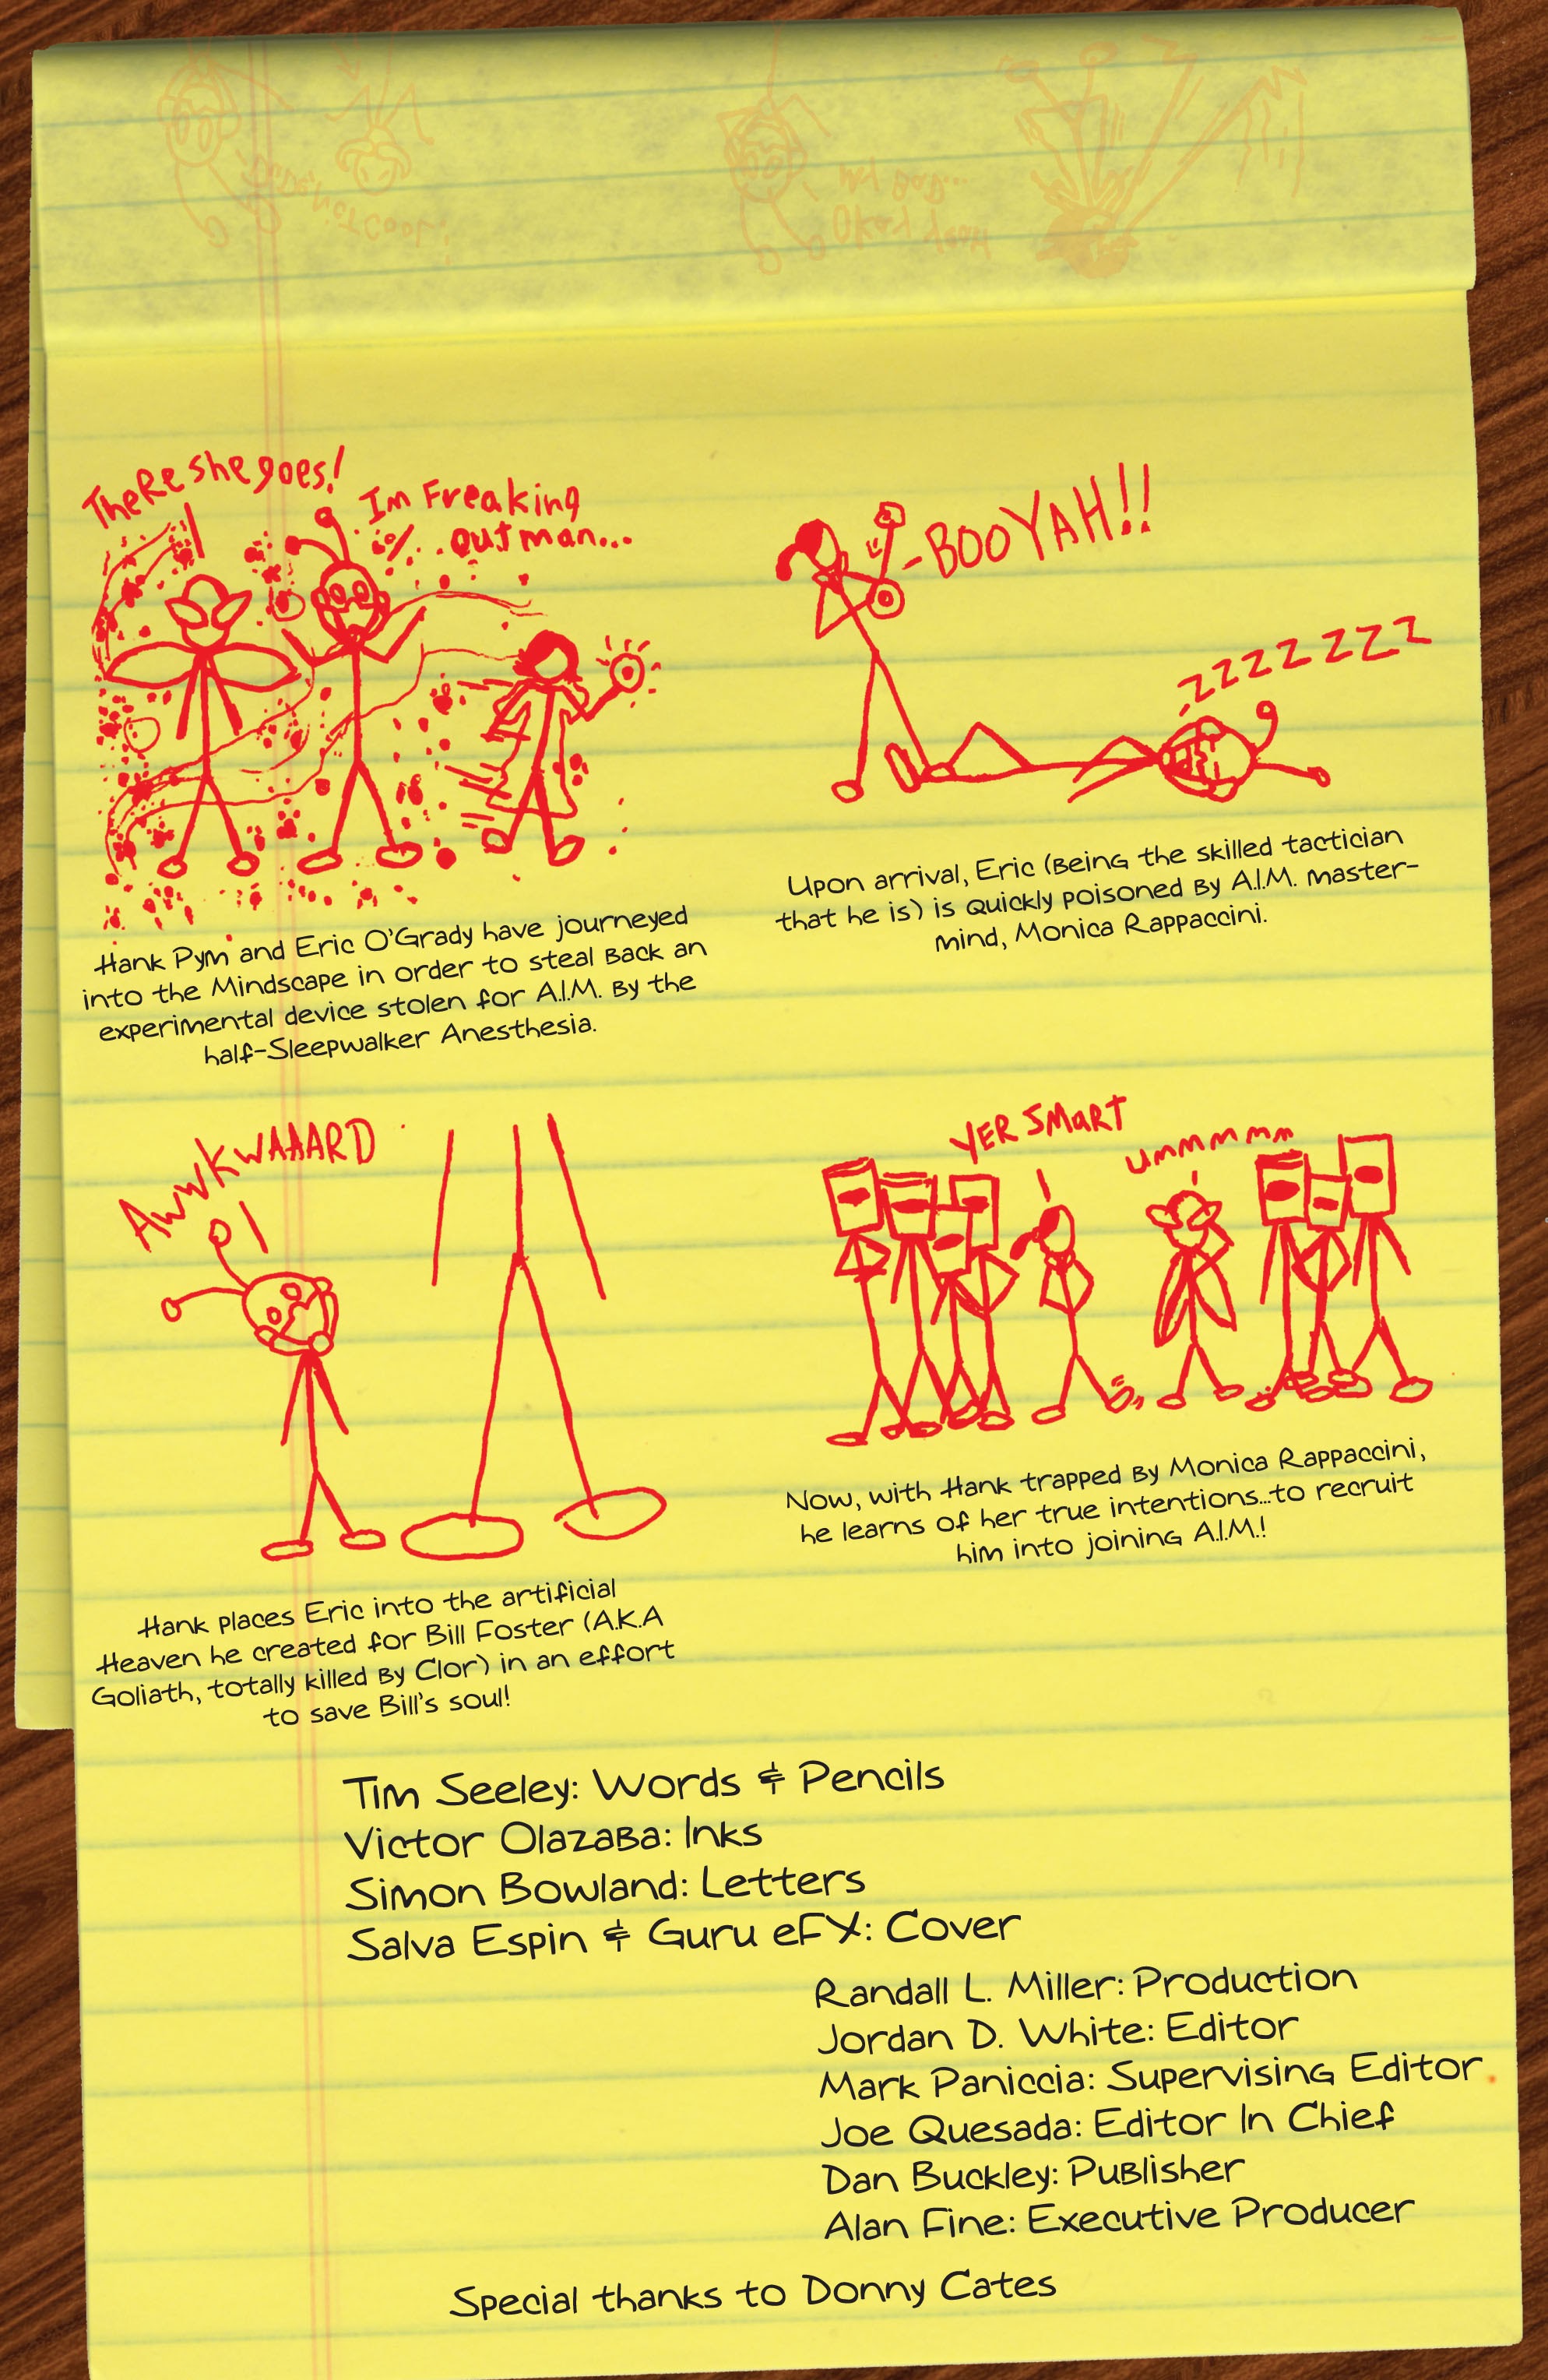 There she goes!
Im Freaking
out man...
-BOOYAH!!
-ZZZZZZZ
Hank Pym and Eric O'Grady have journeyed
into the Mindscape in order to steal back an
experimental device stolen for A.I.M. by the
half-Sleepwalker Anesthesia.
Upon arrival, Eric (being the skilled tactician
that he is) is quickly poisoned by A.I.M. master-
mind, Monica Rappaccini.
AWWKWAAARD
YER SMART
ummmmm
Hank places Eric into the artificial
Heaven he created for Bill Foster (A.K.A
Goliath, totally killed by Clor) in an effort
to save Bill's soul!
Now, with Hank trapped by Monica Rappaccini,
he learns of her true intentions...to recruit
him into joining A.I.M.!
Tim Seeley: Words & Pencils
Victor Olazaba: Inks
Simon Bowland: Letters
Salva Espin & Guru eFX: Cover
Randall L. Miller: Production
Jordan D. White: Editor
Mark Paniccia: Supervising Editor
Joe Quesada: Editor In Chief
Dan Buckley: Publisher
Alan Fine: Executive Producer
Special thanks to Donny Cates